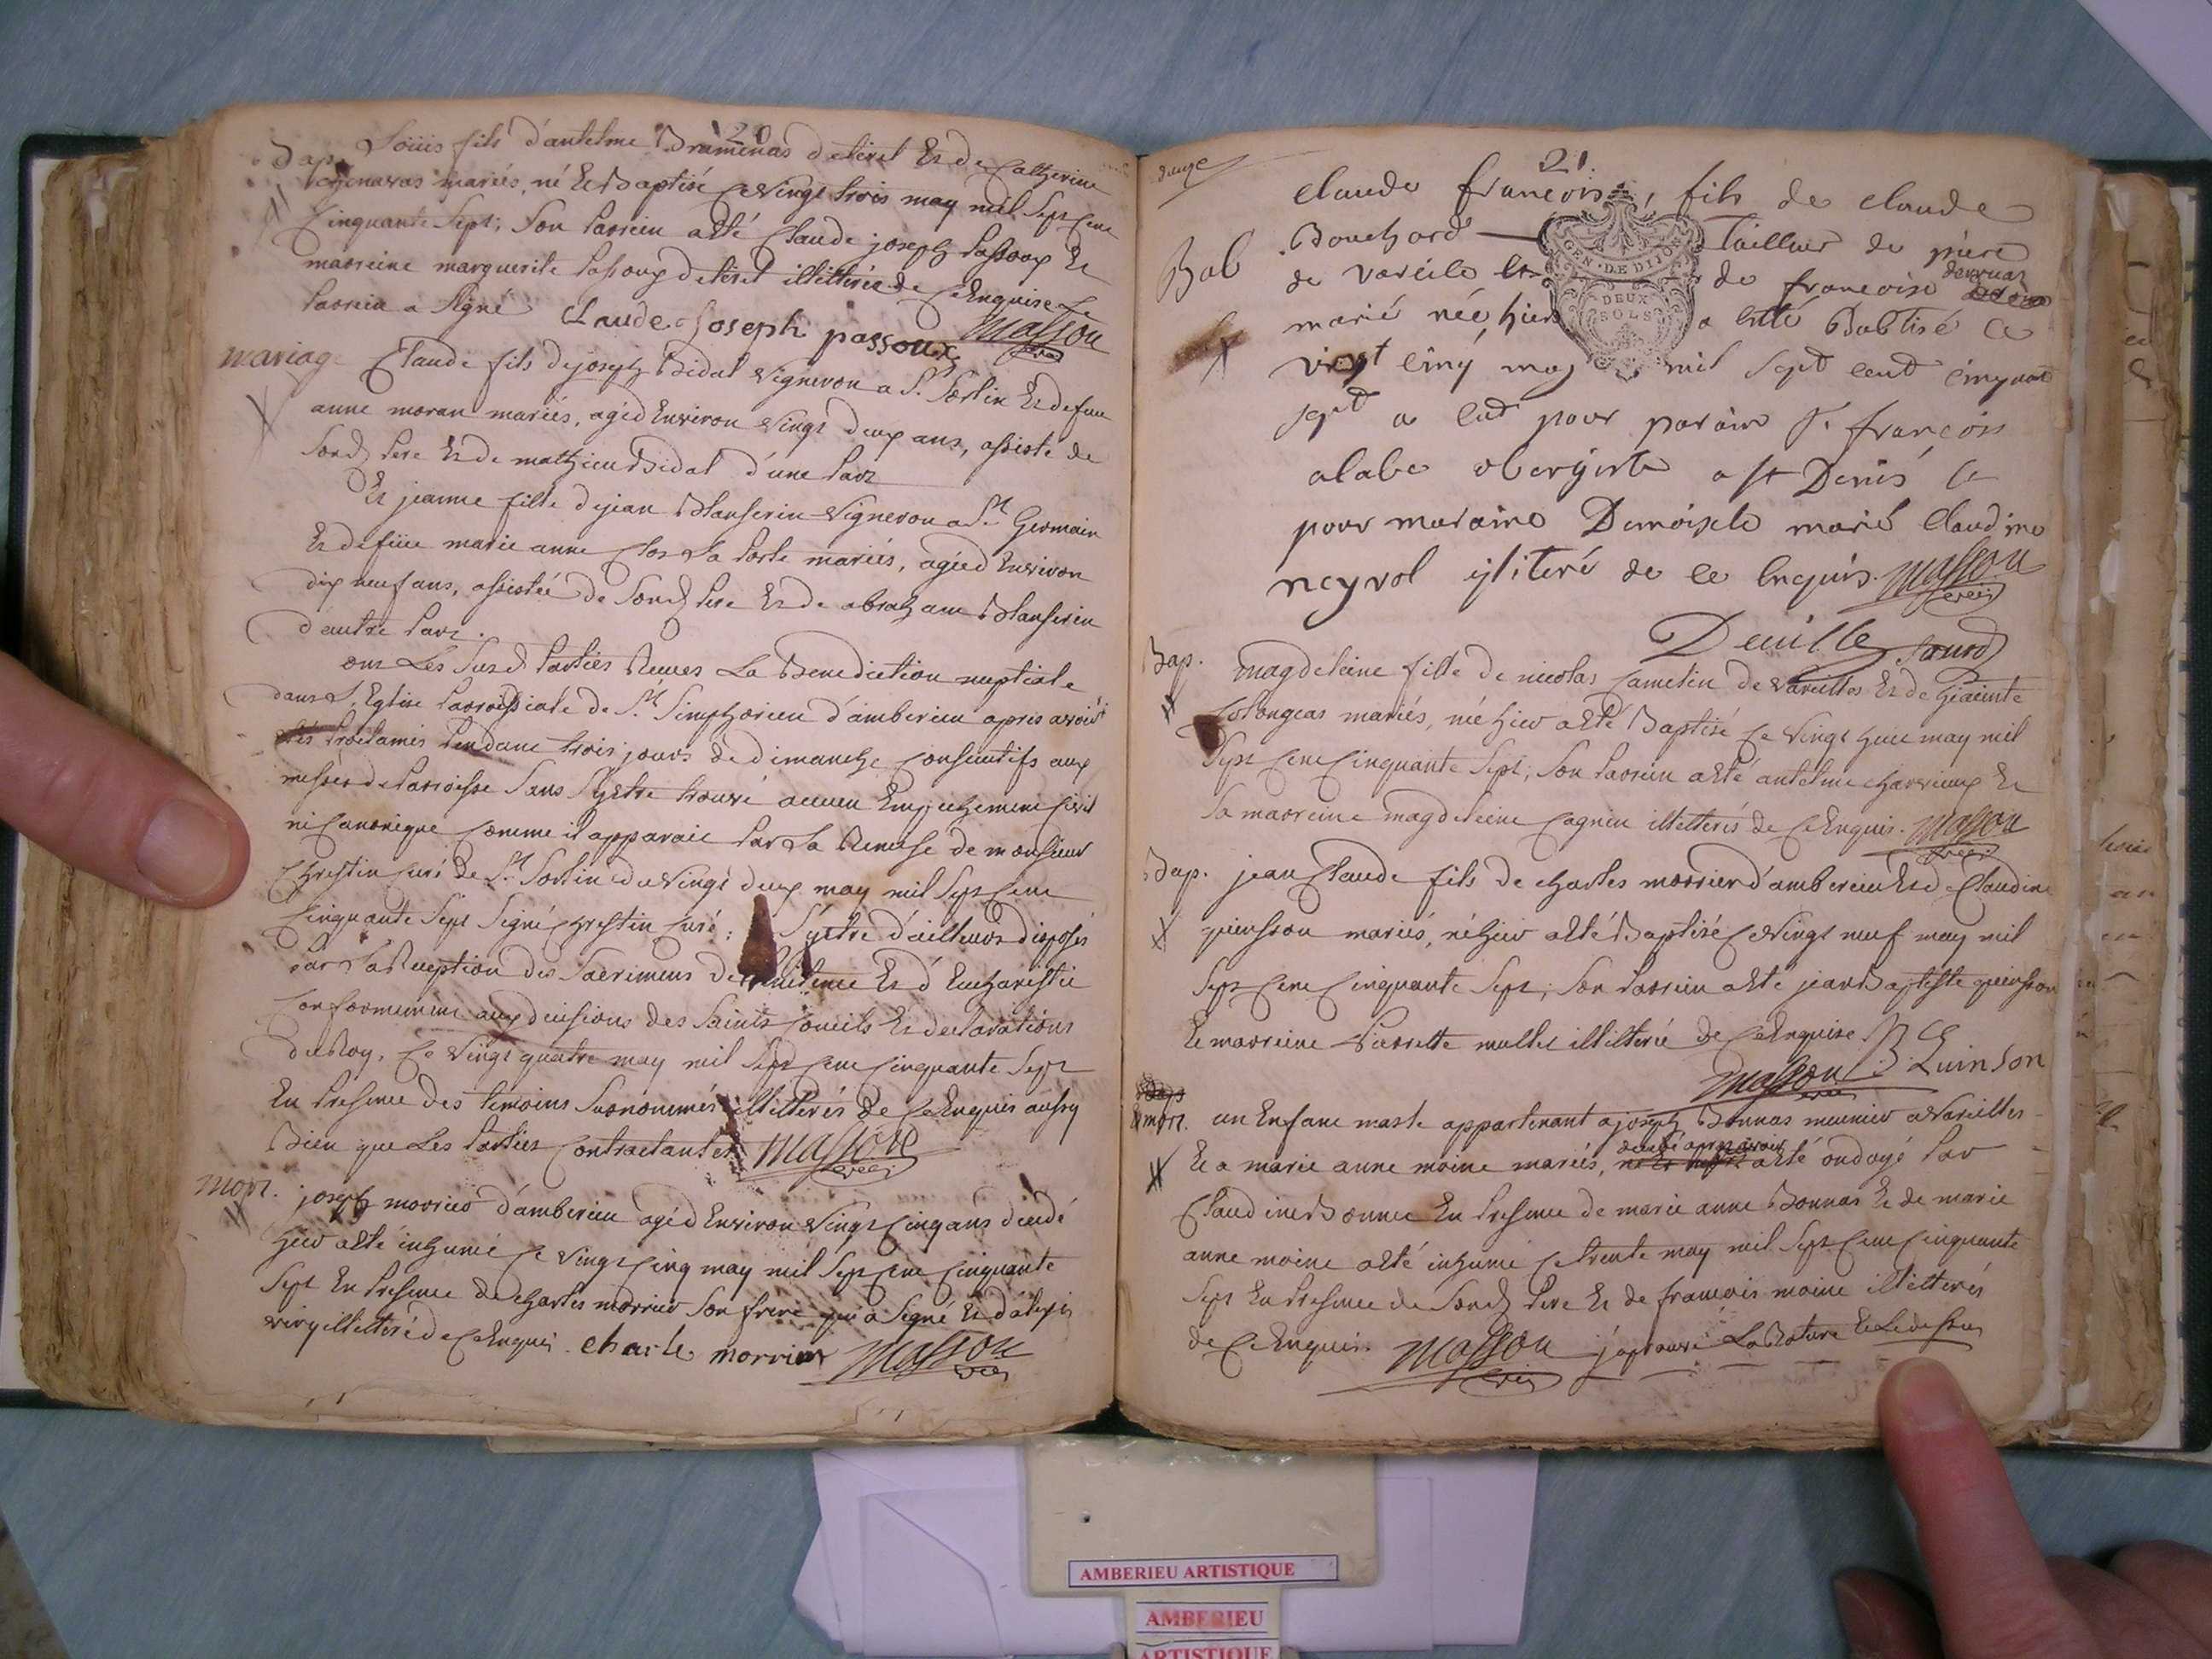 20
Bap. Loüis fils d'antelme Bramenas detiret Et de Catherine
mariés, né Et Baptisé Ce vingt trois may mil Sept Cent
Cinquante Sept; Son Parrein a Eté Claude joseph Passoux Et
marreine marguerite Passoux detiret illitterée de Ce Enquise Le
Parrein a Signé Claude Joseph passoux Masson
Curé
mariage Claude fils de joseph Bidal vigneron a St. Sorlin Et defüe
anne moran mariés, agé d Environ vingt deux ans, assisté de
Sond. Pere Et de mathieu Bidal d'une Part
Et jeanne fille de jean Blanserin vigneron a St. Germain
Et defüe marie anne Clos La Porte mariés, agée d Environ
dix neuf ans, assistée de Sond. Pere Et de abraham Blanserin
d'autre Part.
ont Les Susd. Parties Reçües La Benediction nuptiale
dans L'Eglise Parroissiale de St. Simphorien d'amberieu apres avoir
étés Proclamés Pendant trois jours de dimanche Consecutifs aux
messes de Parroisse Sans S'y etre trouvé aucun Empechement Civil
ni Canonique Comme il apparait Par La Remise de monsieur
Chrestin Curé de St. Sorlin du vingt deux may mil Sept Cent
Cinquante Sept Signé Chrestin Curé; S'y etre d'ailleurs disposés
Par La Reception des Sacrimens de Penitence Et d'Eucharistie
Conformement aux decisions des Saints Conciles Et declarations
du Roy, Ce vingt quatre may mil Sept Cent Cinquante Sept
En Presence des temoins Surnommés illitterés de Ce Enquis aussy
Bien que Les Parties Contractantes. Masson
Curé
mort. joseph morrier d'amberieu agé d Environ vingt Cinq ans decedé
hier a Eté inhumé Ce vingt Cinq may mil Sept Cent Cinquante
Sept En Presence de charles morrier Son frere qui a Signé Et d'alexis
illitteré de Ce Enquis. charle morrier Masson
Curé
21.
claude francois, fils de claude
Bab Bouchard Tailleur de piere
GEN · DE DIJON
DEUX
SOLS
de varéile et de francoise dervuas
marié née hier a esté Babtisé Ce
vingt cinq may mil sept cent cinquante
sept a eut pour parain Sr. francois
alabe obergiste a st Denis Et
pour maraine Demoisele marie Claudine
neyrol ilitere de ce enquis. Masson
Curé
Deuille
Bap. magdeleine fille de nicolas Camelin de vareilles Et de hiacinte
Colongeas mariés, née hier a Eté Baptisé Ce vingt huit may mil
Sept Cent Cinquante Sept, Son Parrein a Eté antelme charvieux Et
Sa marreine magdeleine Cagnin illitterés de Ce Enquis. Masson
Curé
Bap. jean Claude fils de charles morrier d'amberieu Et de Claudine
quinsson mariés, né hier a Eté Baptisé Ce vingt neuf may mil
Sept Cent Cinquante Sept, Son Parrein a Eté jean Baptiste quinsson
Et marreine Pierrette mullet illitterée de Ce Enquise. J B Quinson
Masson
Curé
Bap
& mort. un Enfant masle appartenant a joseph Bonnas meunier a vareilles
decedé apres avoir
Et a marie anne moine mariés, a Eté ondoyé Par
Claudine Bonnet En Presence de marie anne Bonnas Et de marie
anne moine a Eté inhumé Ce trente may mil Sept Cent Cinquante
Sept En Presence de Sond. Pere Et de francois moine illitterés
de Ce Enquis. Masson j'aprouve La Rature Et Le dessus
Curé
AMBERIEU ARTISTIQUE
AMBERIEU
ARTISTIQUE